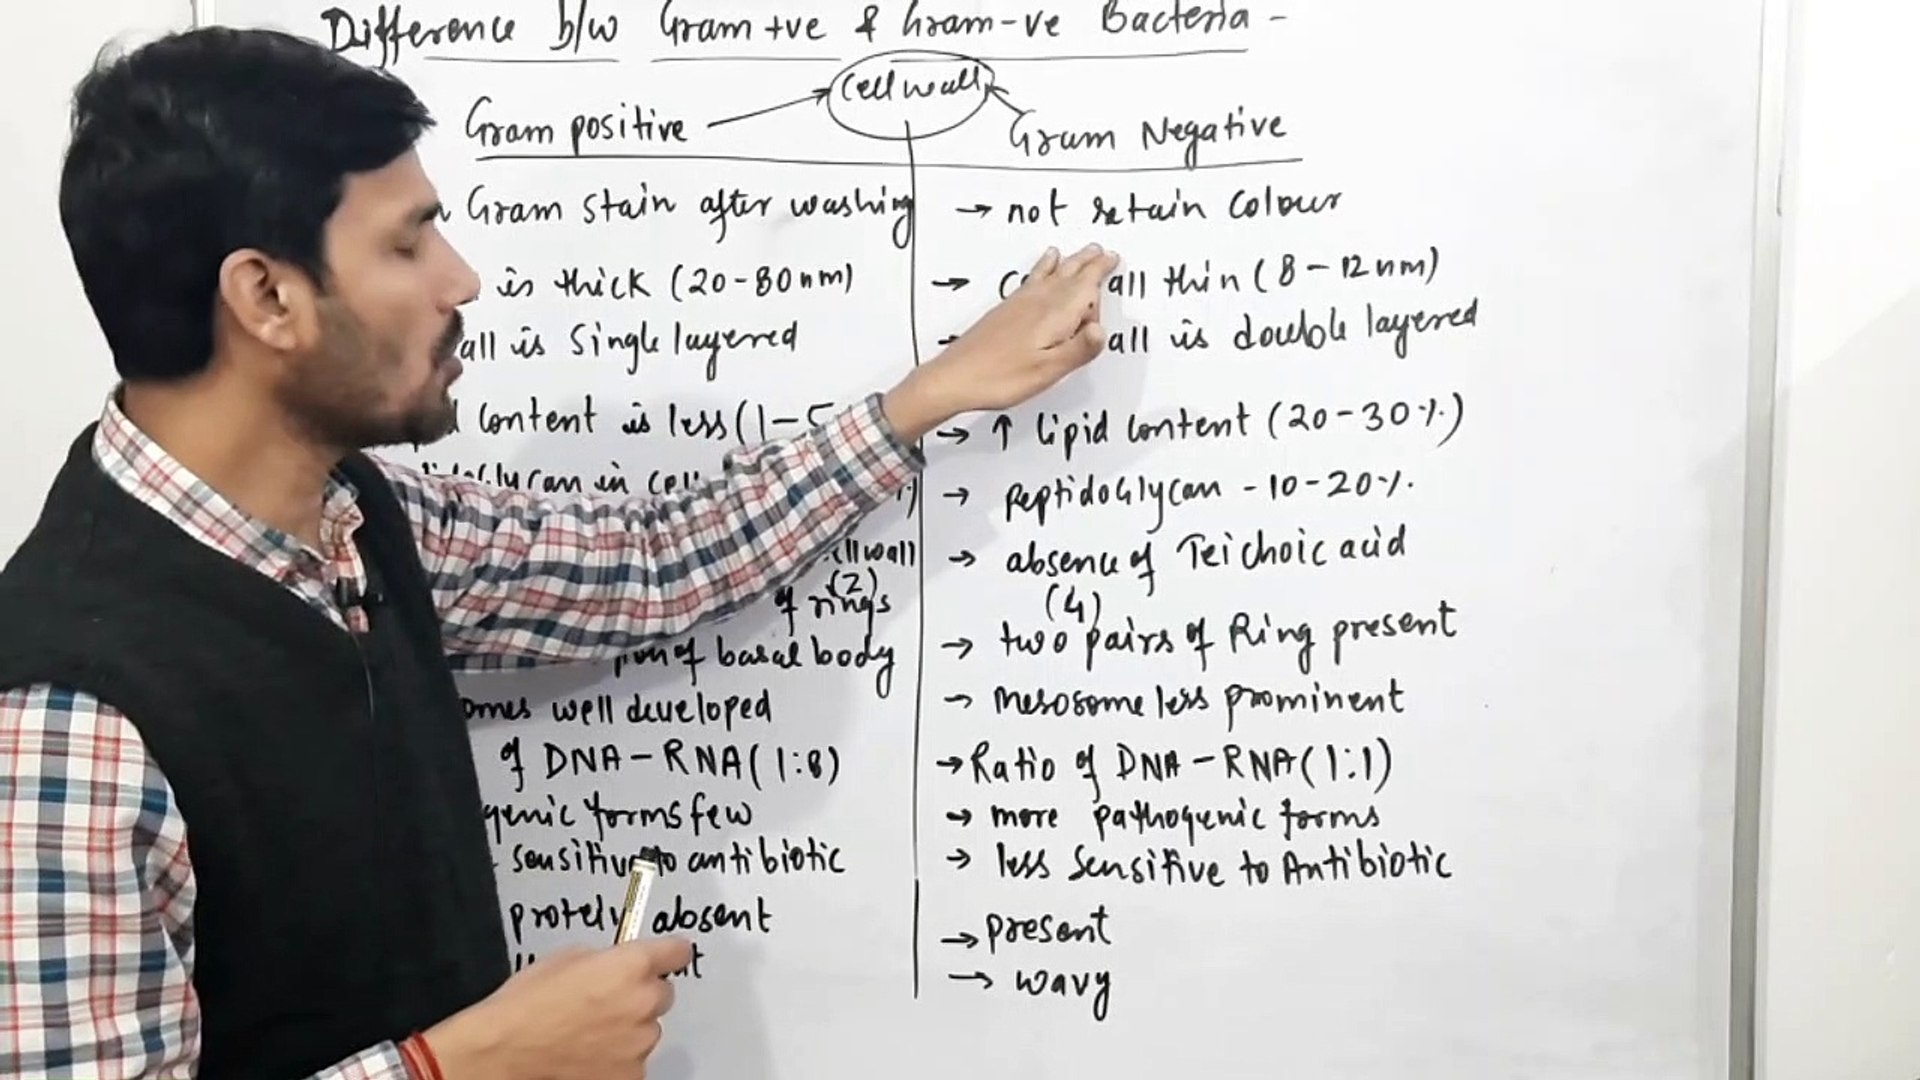 Difference b/w Gram +ve & Gram -ve Bacteria -
Cell wall
Gram positive
Gram Negative
Gram stain after washing
→ not retain colour
is thick (20-80nm)
→ all thin (8-12nm)
all is Single layered
all is double layered
content is less (1-5
→ ↑ lipid content (20-30%)
Glycan in cell
→ PeptidoGlycan - 10-20%.
ll wall
→ absence of Teichoic acid
(2)
of rings
(4)
→ two pairs of Ring present
of basal body
omes well developed
→ mesosome less prominent
of DNA - RNA (1:8)
→ Ratio of DNA - RNA (1:1)
genic forms few
→ more pathogenic forms
sensitive to antibiotic
→ less sensitive to Antibiotic
absent
→ present
→ wavy